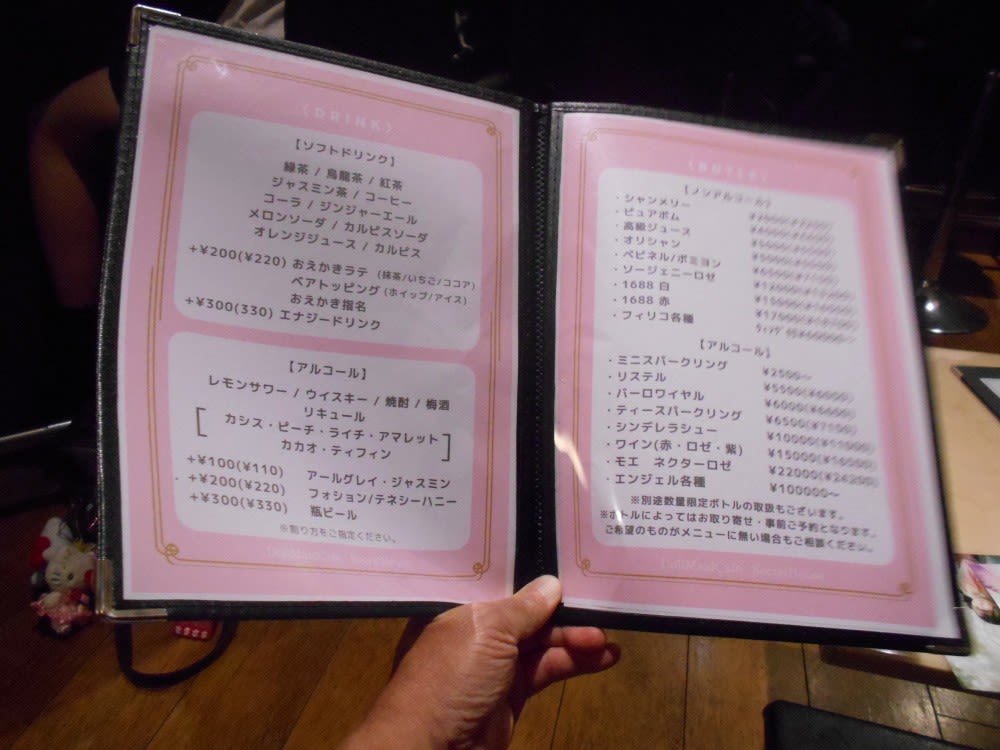 〈DRINK〉
【ソフトドリンク】
緑茶 / 烏龍茶 / 紅茶
ジャスミン茶 / コーヒー
コーラ / ジンジャーエール
メロンソーダ / カルピスソーダ
オレンジジュース / カルピス
+¥200(¥220) おえかきラテ (抹茶/いちご/ココア)
ペアトッピング (ホイップ/アイス)
おえかき指名
+¥300(330) エナジードリンク
【アルコール】
レモンサワー / ウイスキー / 焼酎 / 梅酒
リキュール
[ カシス・ピーチ・ライチ・アマレット
カカオ・ティフィン ]
+¥100(¥110) アールグレイ・ジャスミン
+¥200(¥220) フォション/テネシーハニー
+¥300(¥330) 瓶ビール
※割り方をご指定ください。
【ノンアルコール】
・シャンメリー
・ピュアボム
・高級ジュース
・オリシャン
・ペピネル/ボミヨン
・ソージェニーロゼ
・1688 白
・1688 赤
・フィリコ各種
【アルコール】
・ミニスパークリング ¥2500〜
・リステル ¥5500(¥6000)
・バーロワイヤル ¥6000(¥6600)
・ティースパークリング ¥6500(¥7150)
・シンデレラシュー ¥10000(¥11000)
・ワイン(赤・ロゼ・紫) ¥15000(¥16500)
・モエ ネクターロゼ ¥22000(¥24200)
・エンジェル各種 ¥100000〜
※別途数量限定ボトルの取扱もございます。
※ボトルによってはお取り寄せ・事前ご予約となります。
ご希望のものがメニューに無い場合もご相談ください。
DollMaidCafe SecretHouse